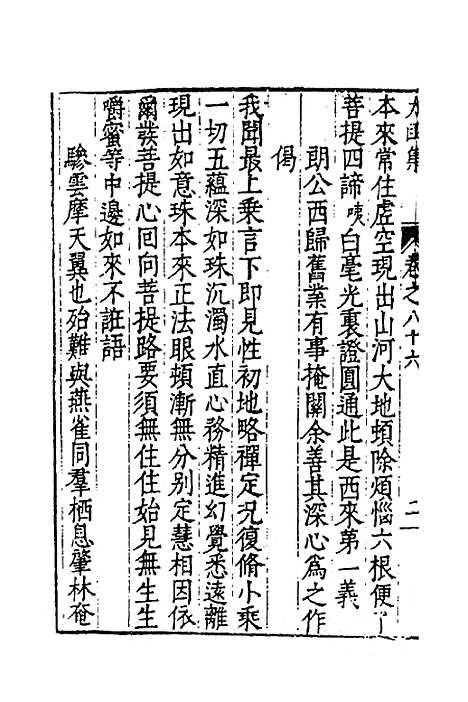 太函集 卷之八十六 二
本來常住虛空現出山河大地頓除煩惱六根便了
菩提四諦咦白毫光裏證圓通此是西來第一義
朗公西歸舊業有事掩關余善其深心爲之作
偈
我聞最上乘言下即見性初地略禪定况復脩小乘
一切五蘊深如珠沉濁水直心務精進幻覺悉遠離
現出如意珠本來正法眼頓漸無分别定慧相因依
爾發菩提心回向菩提路要須無住住始見無生生
嚼蜜等中邊如來不誑語
驂雲摩天翼也殆難與燕雀同羣栖息肇林奄